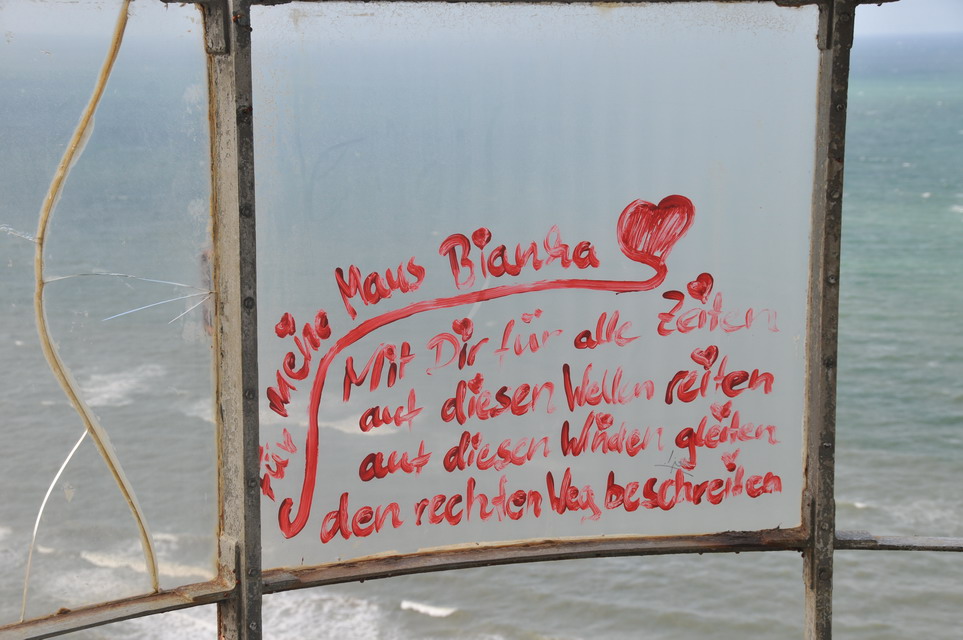 für meine Maus Bianka
Mit Dir für alle Zeiten
auf diesen Wellen reiten
auf diesen Winden gleiten
den rechten Weg beschreiten